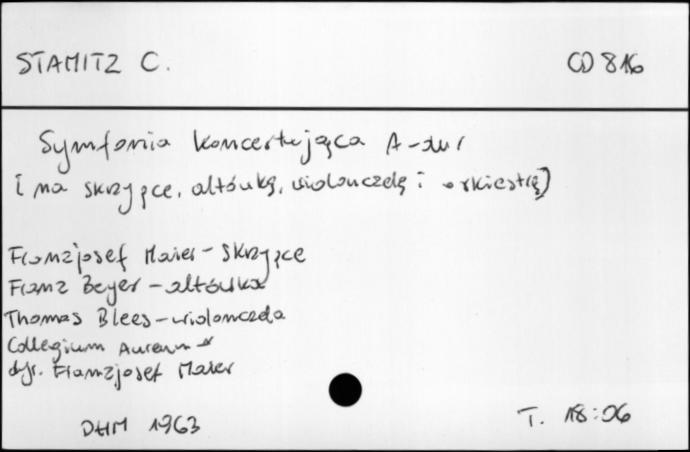 STAMITZ C. CD 816
Symfonia koncertująca A-dur
[na skrzypce, altówkę, wiolonczelę i orkiestrę]
Franzjosef Maier - skrzypce
Franz Beyer - altówka
Thomas Blees - wiolonczela
Collegium Aureum
dyr. Franzjosef Maier
DHM 1963 T. 18:06